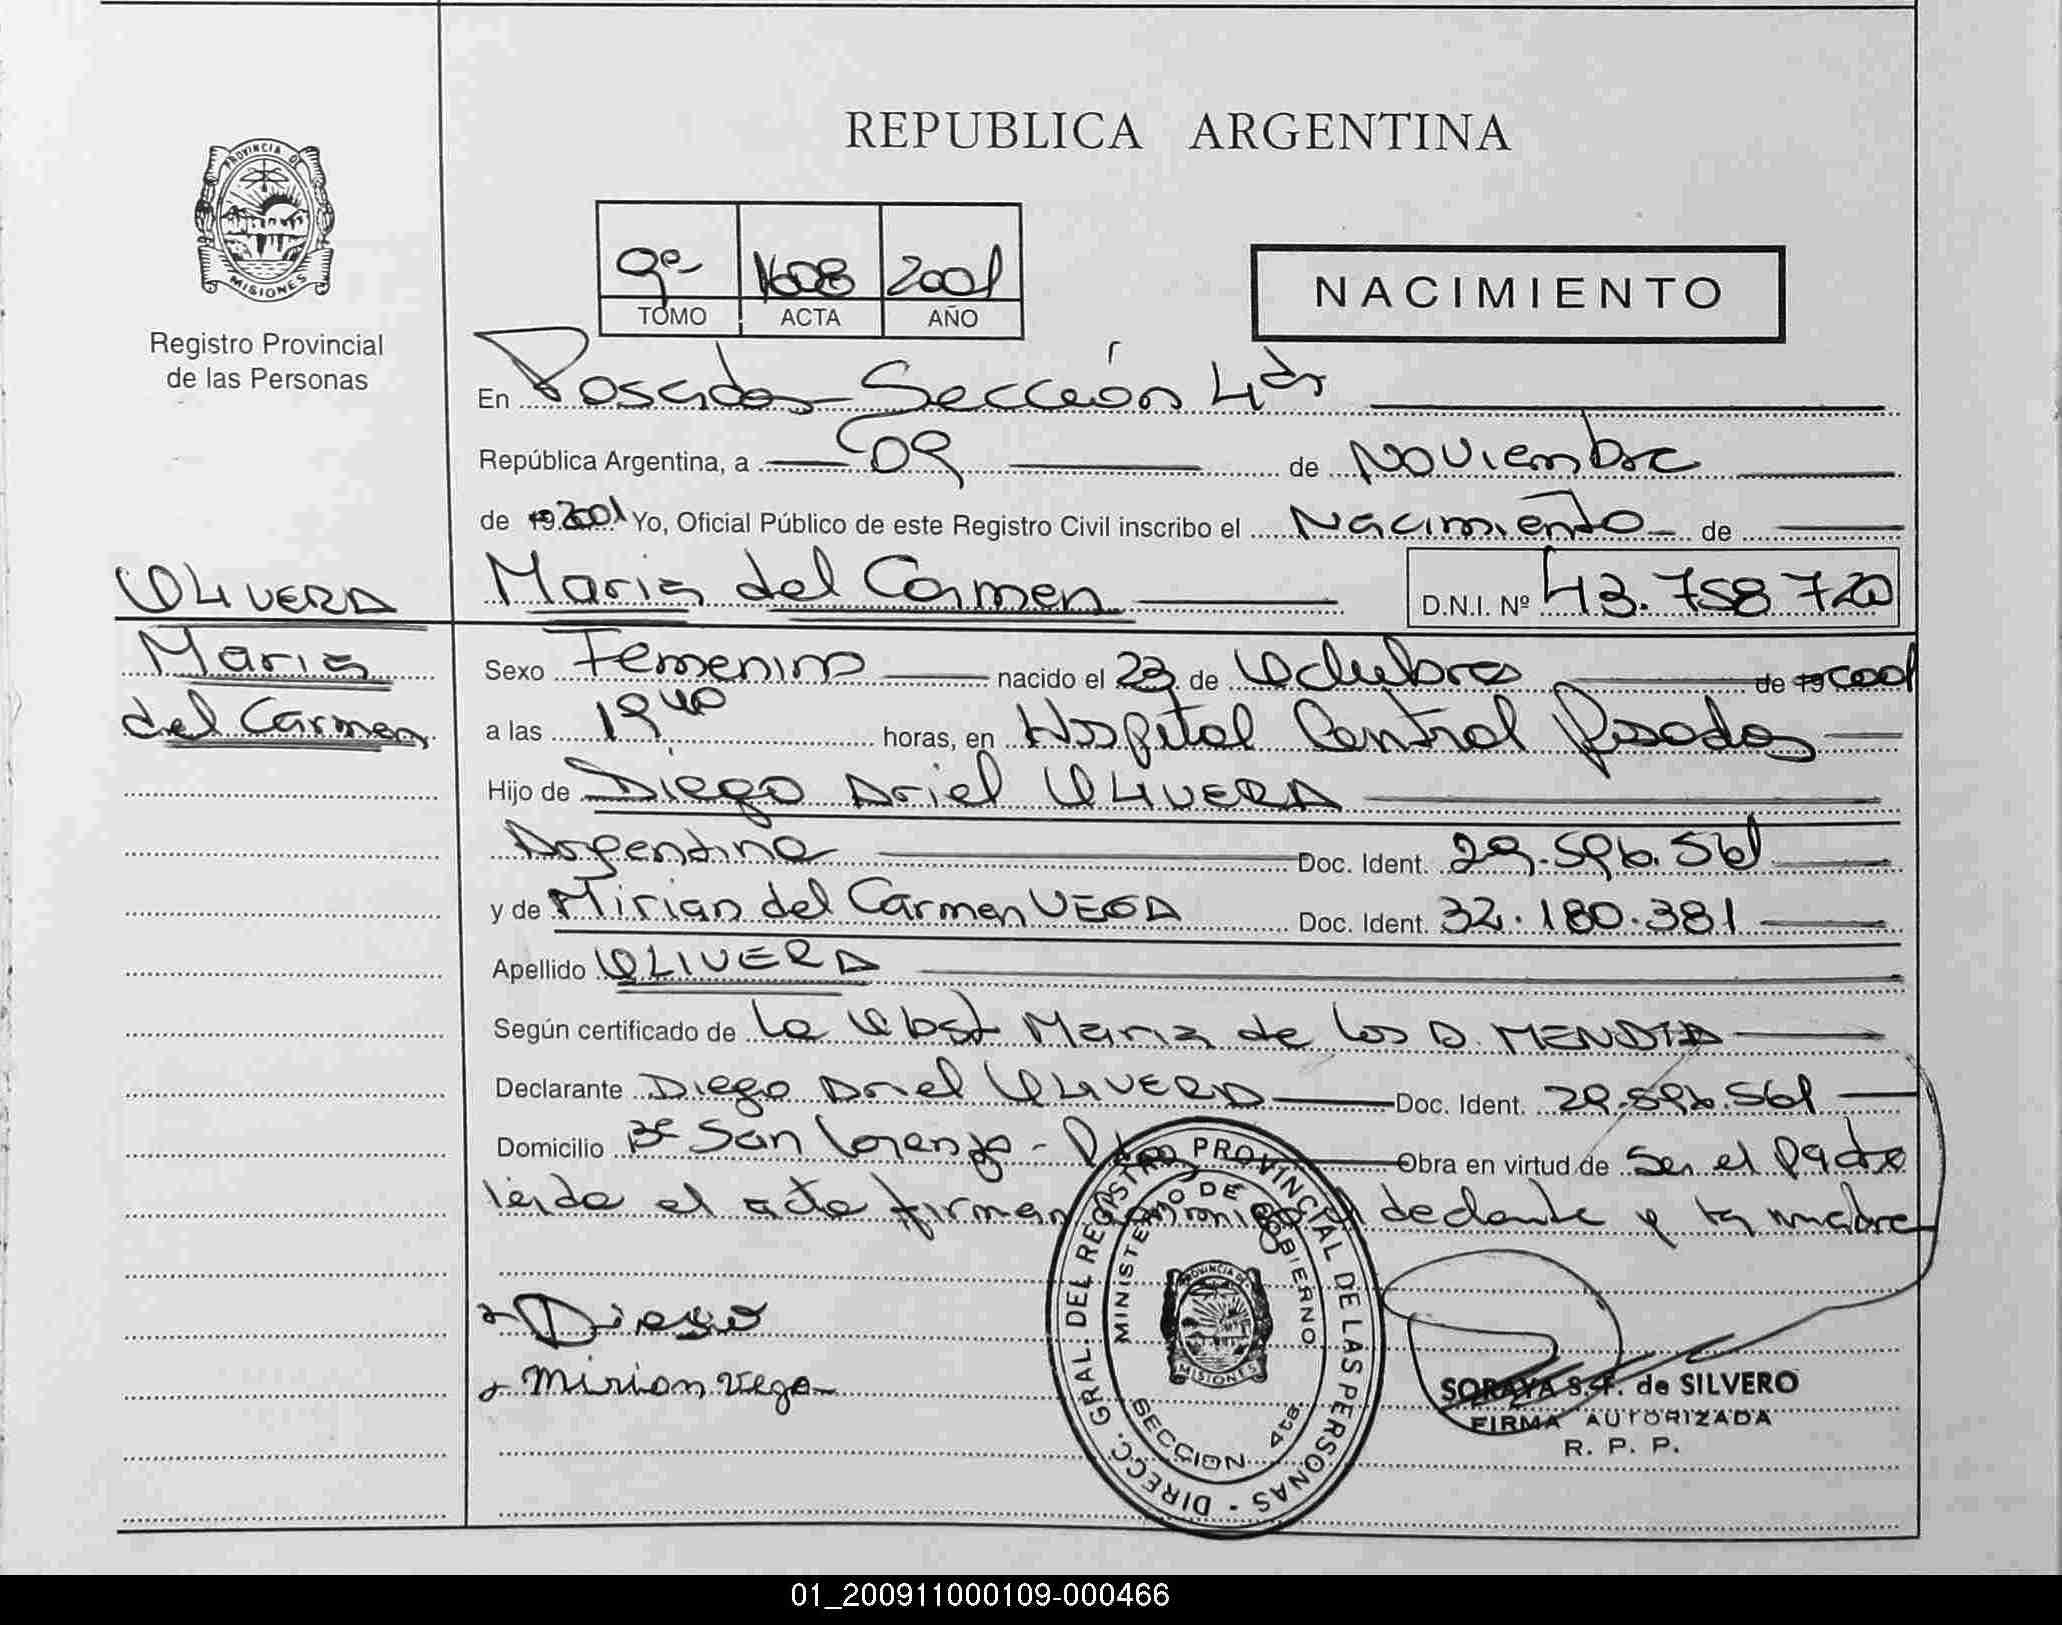 REPUBLICA ARGENTINA
PROVINCIA DE
MISIONES
Registro Provincial
de las Personas
9º 1608 2001
TOMO ACTA AÑO
NACIMIENTO
En Posadas Sección 4ta
República Argentina, a 09 de Noviembre
de 19 2001 Yo, Oficial Público de este Registro Civil inscribo el Nacimiento de
Maria del Carmen D.N.I. Nº 43.758720
OLIVERA
Maria
del Carmen
Sexo Femenino nacido el 23 de Octubre de 19 2001
a las 19 40 horas, en Hospital Central Posadas
Hijo de Diego Ariel OLIVERA
Argentina Doc. Ident. 29.596.561
y de Mirian del Carmen VEGA Doc. Ident. 32.180.381
Apellido OLIVERA
Según certificado de La Obst Maria de los A. MENDIA
Declarante Diego Ariel OLIVERA Doc. Ident. 29.596.561
Domicilio Bº San Lorenzo - Obra en virtud de Ser el Padre
leida el acta firman conmigo el declante y la madre
Diego
Mirian Vega
DIRECC. GRAL. DEL REGISTRO PROVINCIAL DE LAS PERSONAS -
MINISTERIO DE GOBIERNO
PROVINCIA DE
MISIONES
SECCION 4ta.
SORAYA S. F. de SILVERO
FIRMA AUTORIZADA
R. P. P.
01_200911000109-000466